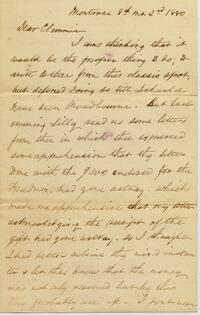 Montrose 8th mo. 2nd 1880
Dear Clemmie
I was thinking that it
would be the proper thing to do, to
write a letter from this classic spot,
but deferred doing so till I should
have been Broadbourne. But last
evening Lilly read us some letters
from thee in which thee expressed
some apprehension that thy letter
to me with the $200 enclosed for the
Freedmen had gone astray. Which
made me apprehensive that my letter
acknowledging the receipt of the
gift had gone astray. So I thought
I had better relieve thy mind instanter
& let thee know that the money
was not only received but by this
time probably used up. I don't mean